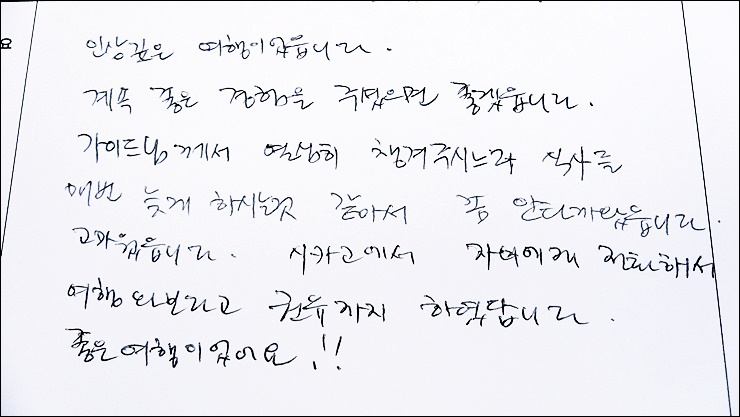 인상깊은 여행이었읍니다.
계속 좋은 경험을 주셨으면 좋겠읍니다.
가이드님께서 열심히 챙겨주시느라 식사를
매번 늦게 하시는것 같아서 좀 안타까웠읍니다.
고마웠읍니다. 시카고에서 자녀에게 전화해서
여행 와보라고 권유까지 하였답니다.
좋은여행이었어요!!